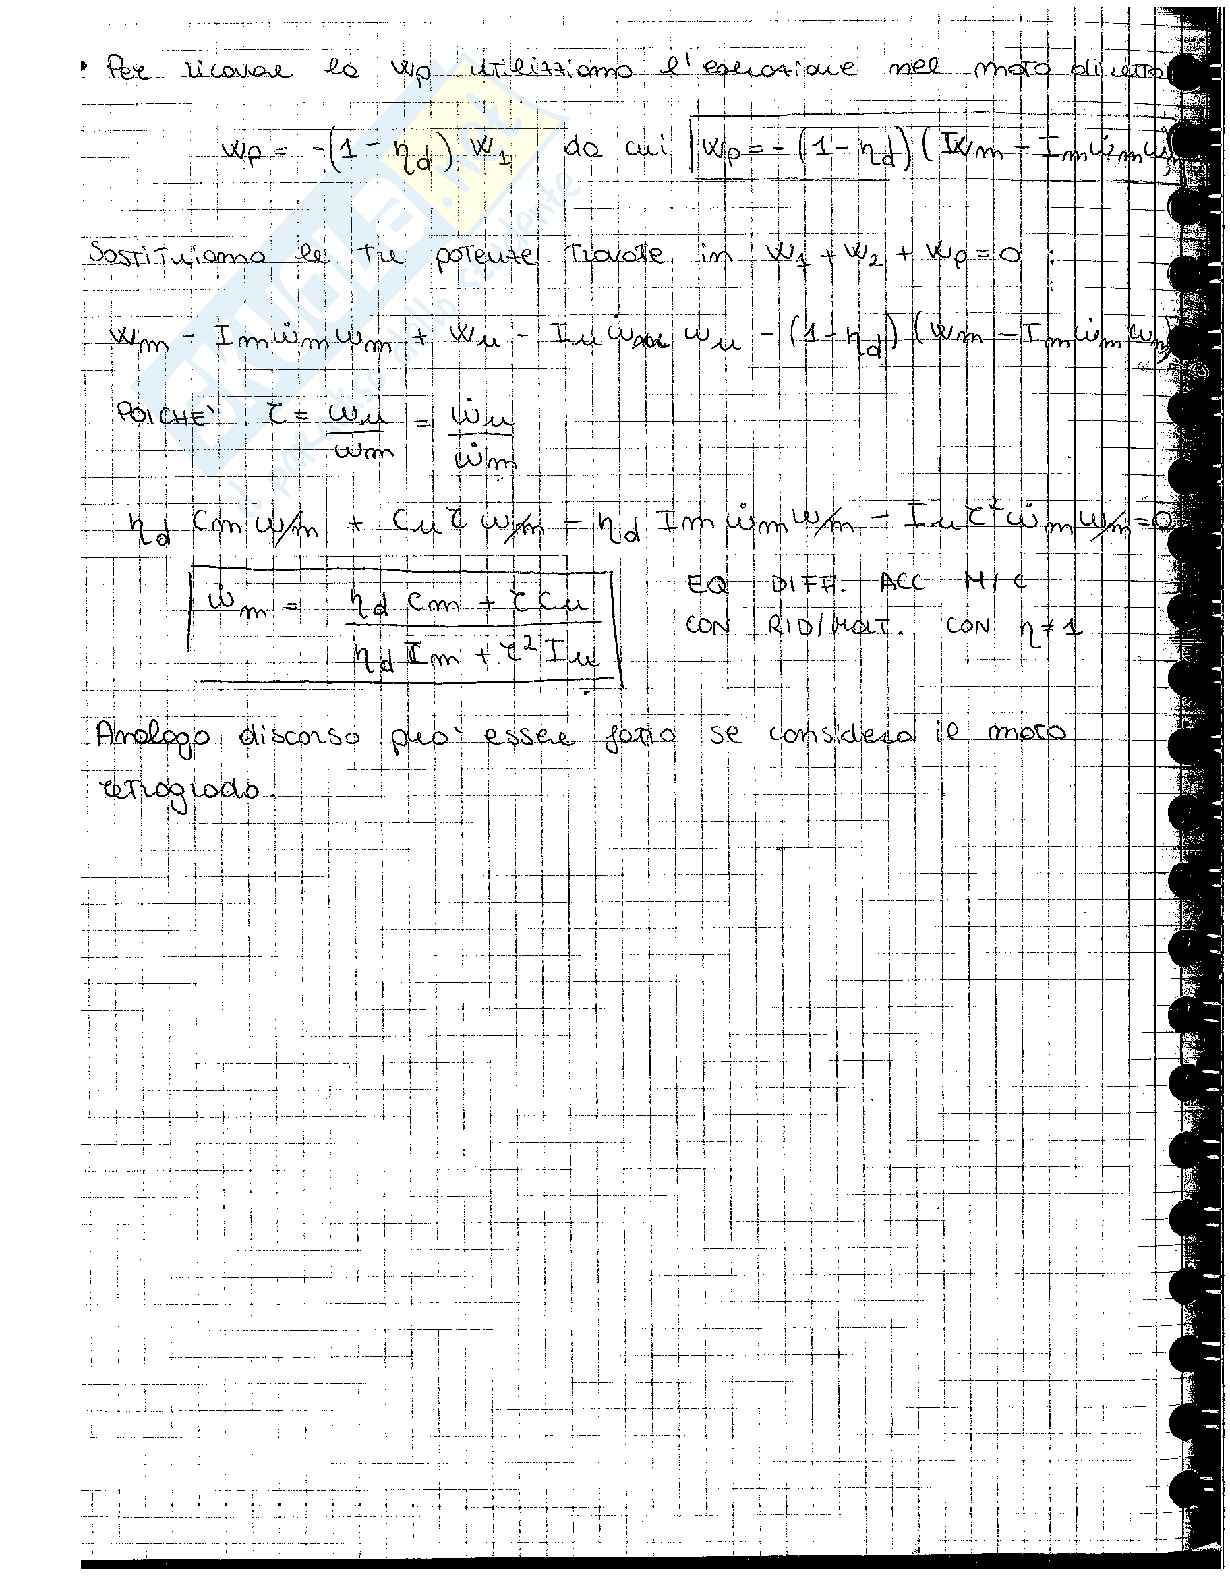 • Per ricavare la Wp utilizziamo l'equazione nel moto diretto
Wp = -(1 - ηd) W1 da cui Wp = -(1 - ηd) (Wm - Im ω̇m ωm)
Sostituiamo le tre potenze trovate in W1 + W2 + Wp = 0 :
Wm - Im ω̇m ωm + Wu - Iu ω̇u ωu - (1 - ηd) (Wm - Im ω̇m ωm)
POICHE' τ = ωu/ωm = ω̇u/ω̇m
ηd Cm ωm + Cu τ ωm - ηd Im ω̇m ωm - Iu τ² ω̇m ωm = 0
ω̇m = (ηd Cm + τ Cu)/(ηd Im + τ² Iu)
EQ DIFF. ACC M/C
CON RID/MOLT. CON η ≠ 1
Analogo discorso può essere fatto se considero il moto
retrogrado.
SKUOLA.net